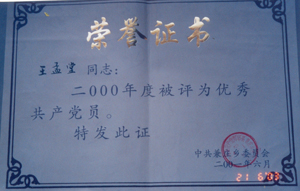 荣誉证书
王孟雪 同志：
二000年度被评为优秀
共产党员。
特发此证
中共
乡委员会
二00一年六月